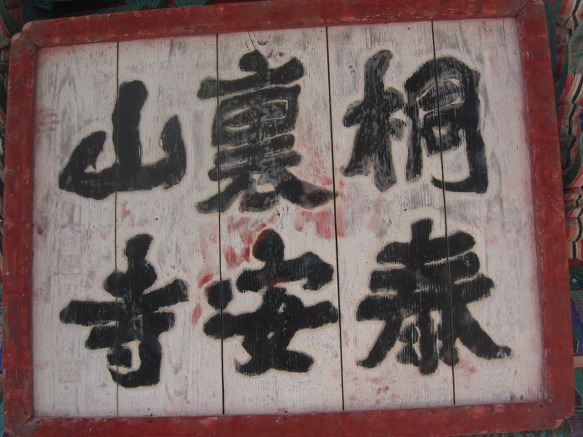 桐裏山
泰安寺